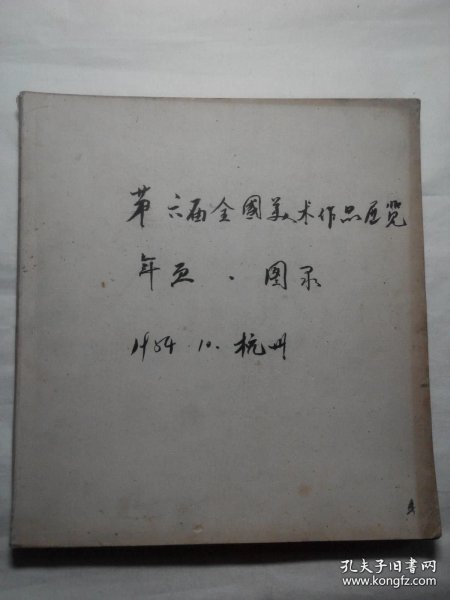 第六届全國美术作品展览
年画·图录
1984.10.杭州
孔夫子旧书网
www.kongfz.com